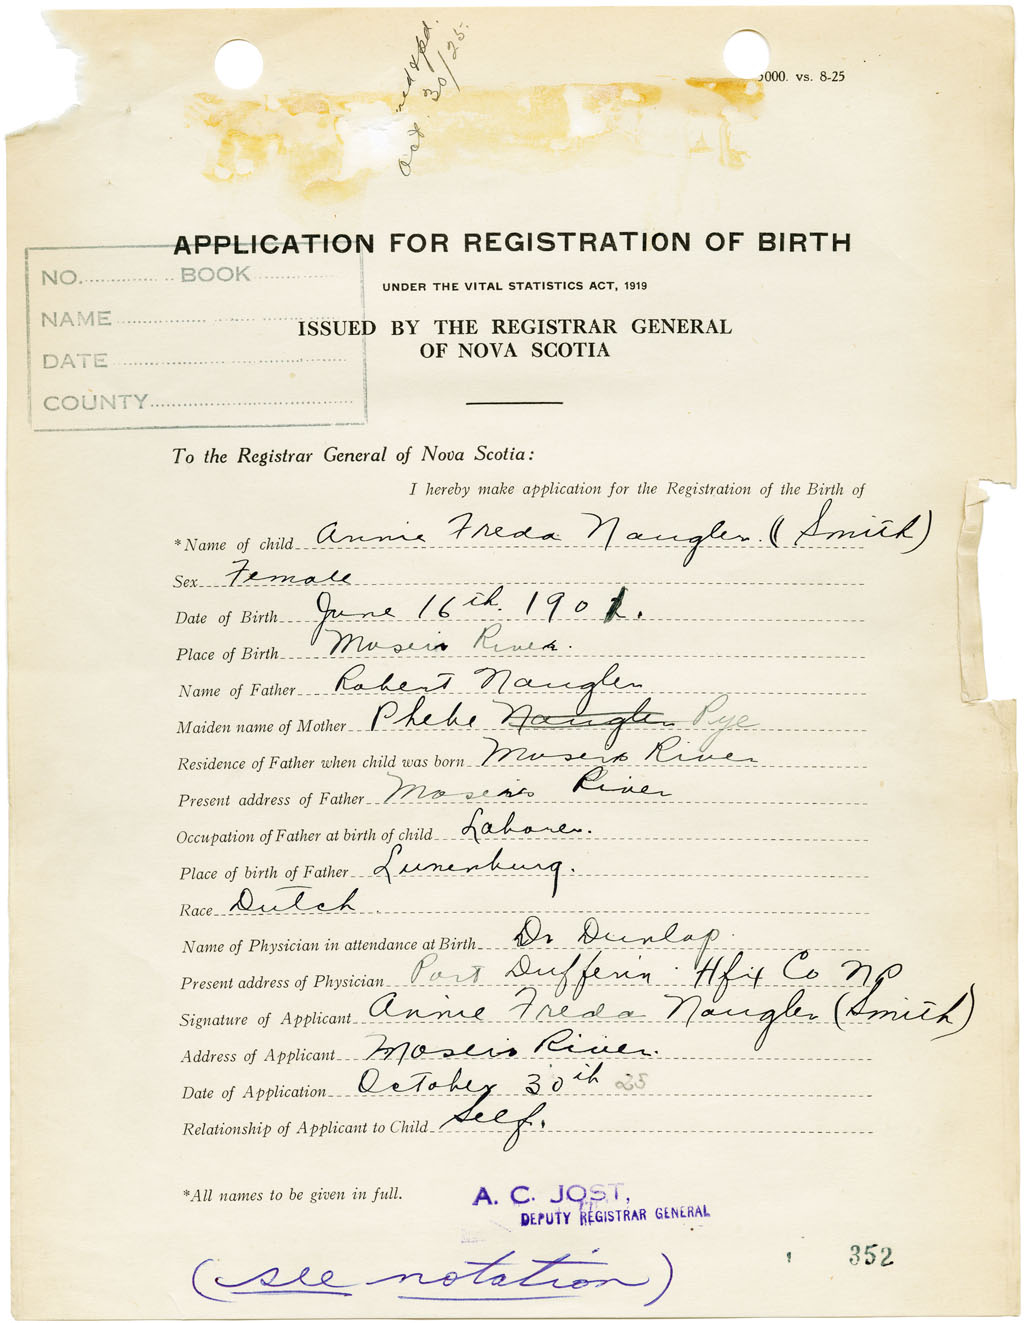 Oct. 30/25.
5000. vs. 8-25
APPLICATION FOR REGISTRATION OF BIRTH
UNDER THE VITAL STATISTICS ACT, 1919
ISSUED BY THE REGISTRAR GENERAL
OF NOVA SCOTIA
NO. BOOK
NAME
DATE
COUNTY
To the Registrar General of Nova Scotia:
I hereby make application for the Registration of the Birth of
*Name of child Annie Freda Naugler. (Smith)
Sex Female
Date of Birth June 16th. 190
Place of Birth Mosers River.
Name of Father Robert Naugler
Maiden name of Mother Phebe Naugler Pye
Residence of Father when child was born Mosers River
Present address of Father Mosers River
Occupation of Father at birth of child Laborer.
Place of birth of Father Lunenburg.
Race Dutch.
Name of Physician in attendance at Birth Dr Dunlap.
Present address of Physician Port Dufferin. Hfx Co
Signature of Applicant Annie Freda Naugler (Smith)
Address of Applicant Mosers River.
Date of Application October 30th 25
Relationship of Applicant to Child Self.
*All names to be given in full.
A. C. JOST,
DEPUTY REGISTRAR GENERAL
352
(see notation)